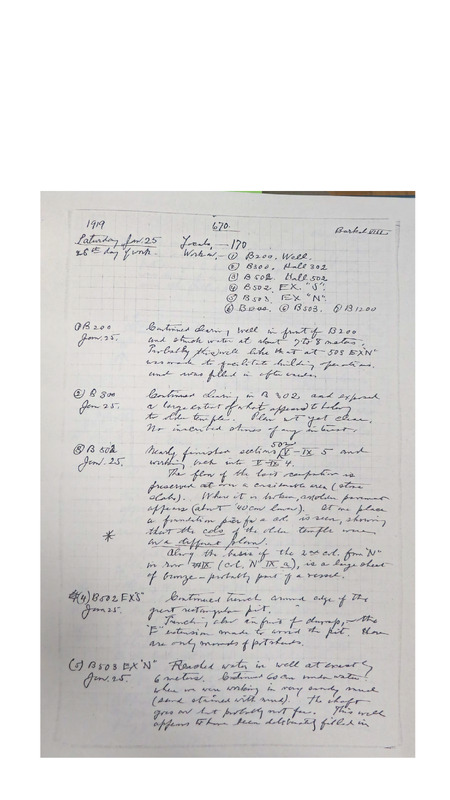 1919
670.
Barkal VIII.
Saturday Jan. 25
26th day of work.
170
Work in, — (1) B200. Well.
(2) B300, Hall 302
(3) B502. Hall 502
(4) B502. EX. "S".
(5) B503. EX "N".
(6) B503. B1200
(1) B200
Jan. 25.
Continued clearing well in front of B200
and struck water at about 7 to 8 meters.
Probably this well like that at 503 EXN
was made to facilitate building operations
and was filled in afterwards.
(2) B300
Jan 25.
Continued clearing in B302, and exposed
a large extent of what appeared to belong
to older temple. Plan not yet clear.
No inscribed stones of any interest.
(3) B502
Jan. 25.
502
Nearly finished sections V-IX 5 and
working back into V-IX 4.
The floor of the last occupation is
preserved over a considerable area (stone
slabs). Where it is broken, an older pavement
appears (about 40 cm lower). At one place
a foundation pier for a col. is seen, showing
that the cols of the older temple were
on a different plan.
*
Along the bases of the 2nd col. from "N"
in row IX (col. N IX a), is a large sheet
of bronze - probably part of a vessel.
(4) B502 EX S
Jan 25.
Continued trench around edge of the
great rectangular pit.
Trenching also in front of dump, the
F extension made to avoid the pit. There
are only mounds of potsherds.
(5) B503 EX "N"
Jan. 25.
Reached water in well at exactly
6 meters. Continued under water
when we were working in very sandy mud
(sand stained with mud). The shaft
goes on but probably not far. This well
appears to have been deliberately filled in